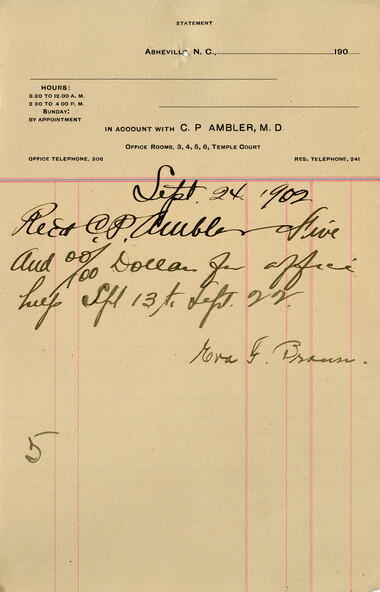 STATEMENT
ASHEVILLE, N. C., 190
HOURS:
9.30 TO 12.00 A. M.
2 30 TO 4 00 P. M.
SUNDAY:
BY APPOINTMENT
IN ACCOUNT WITH C. P. AMBLER, M. D.
OFFICE ROOMS, 3, 4, 5, 6, TEMPLE COURT
OFFICE TELEPHONE, 306
RES. TELEPHONE, 241
Sept. 24. 1902
Recd C. P. Ambler Five
and 00/100 Dollars for office
help Spt 13 to Sept. 22.
Eva G. Brown.
5